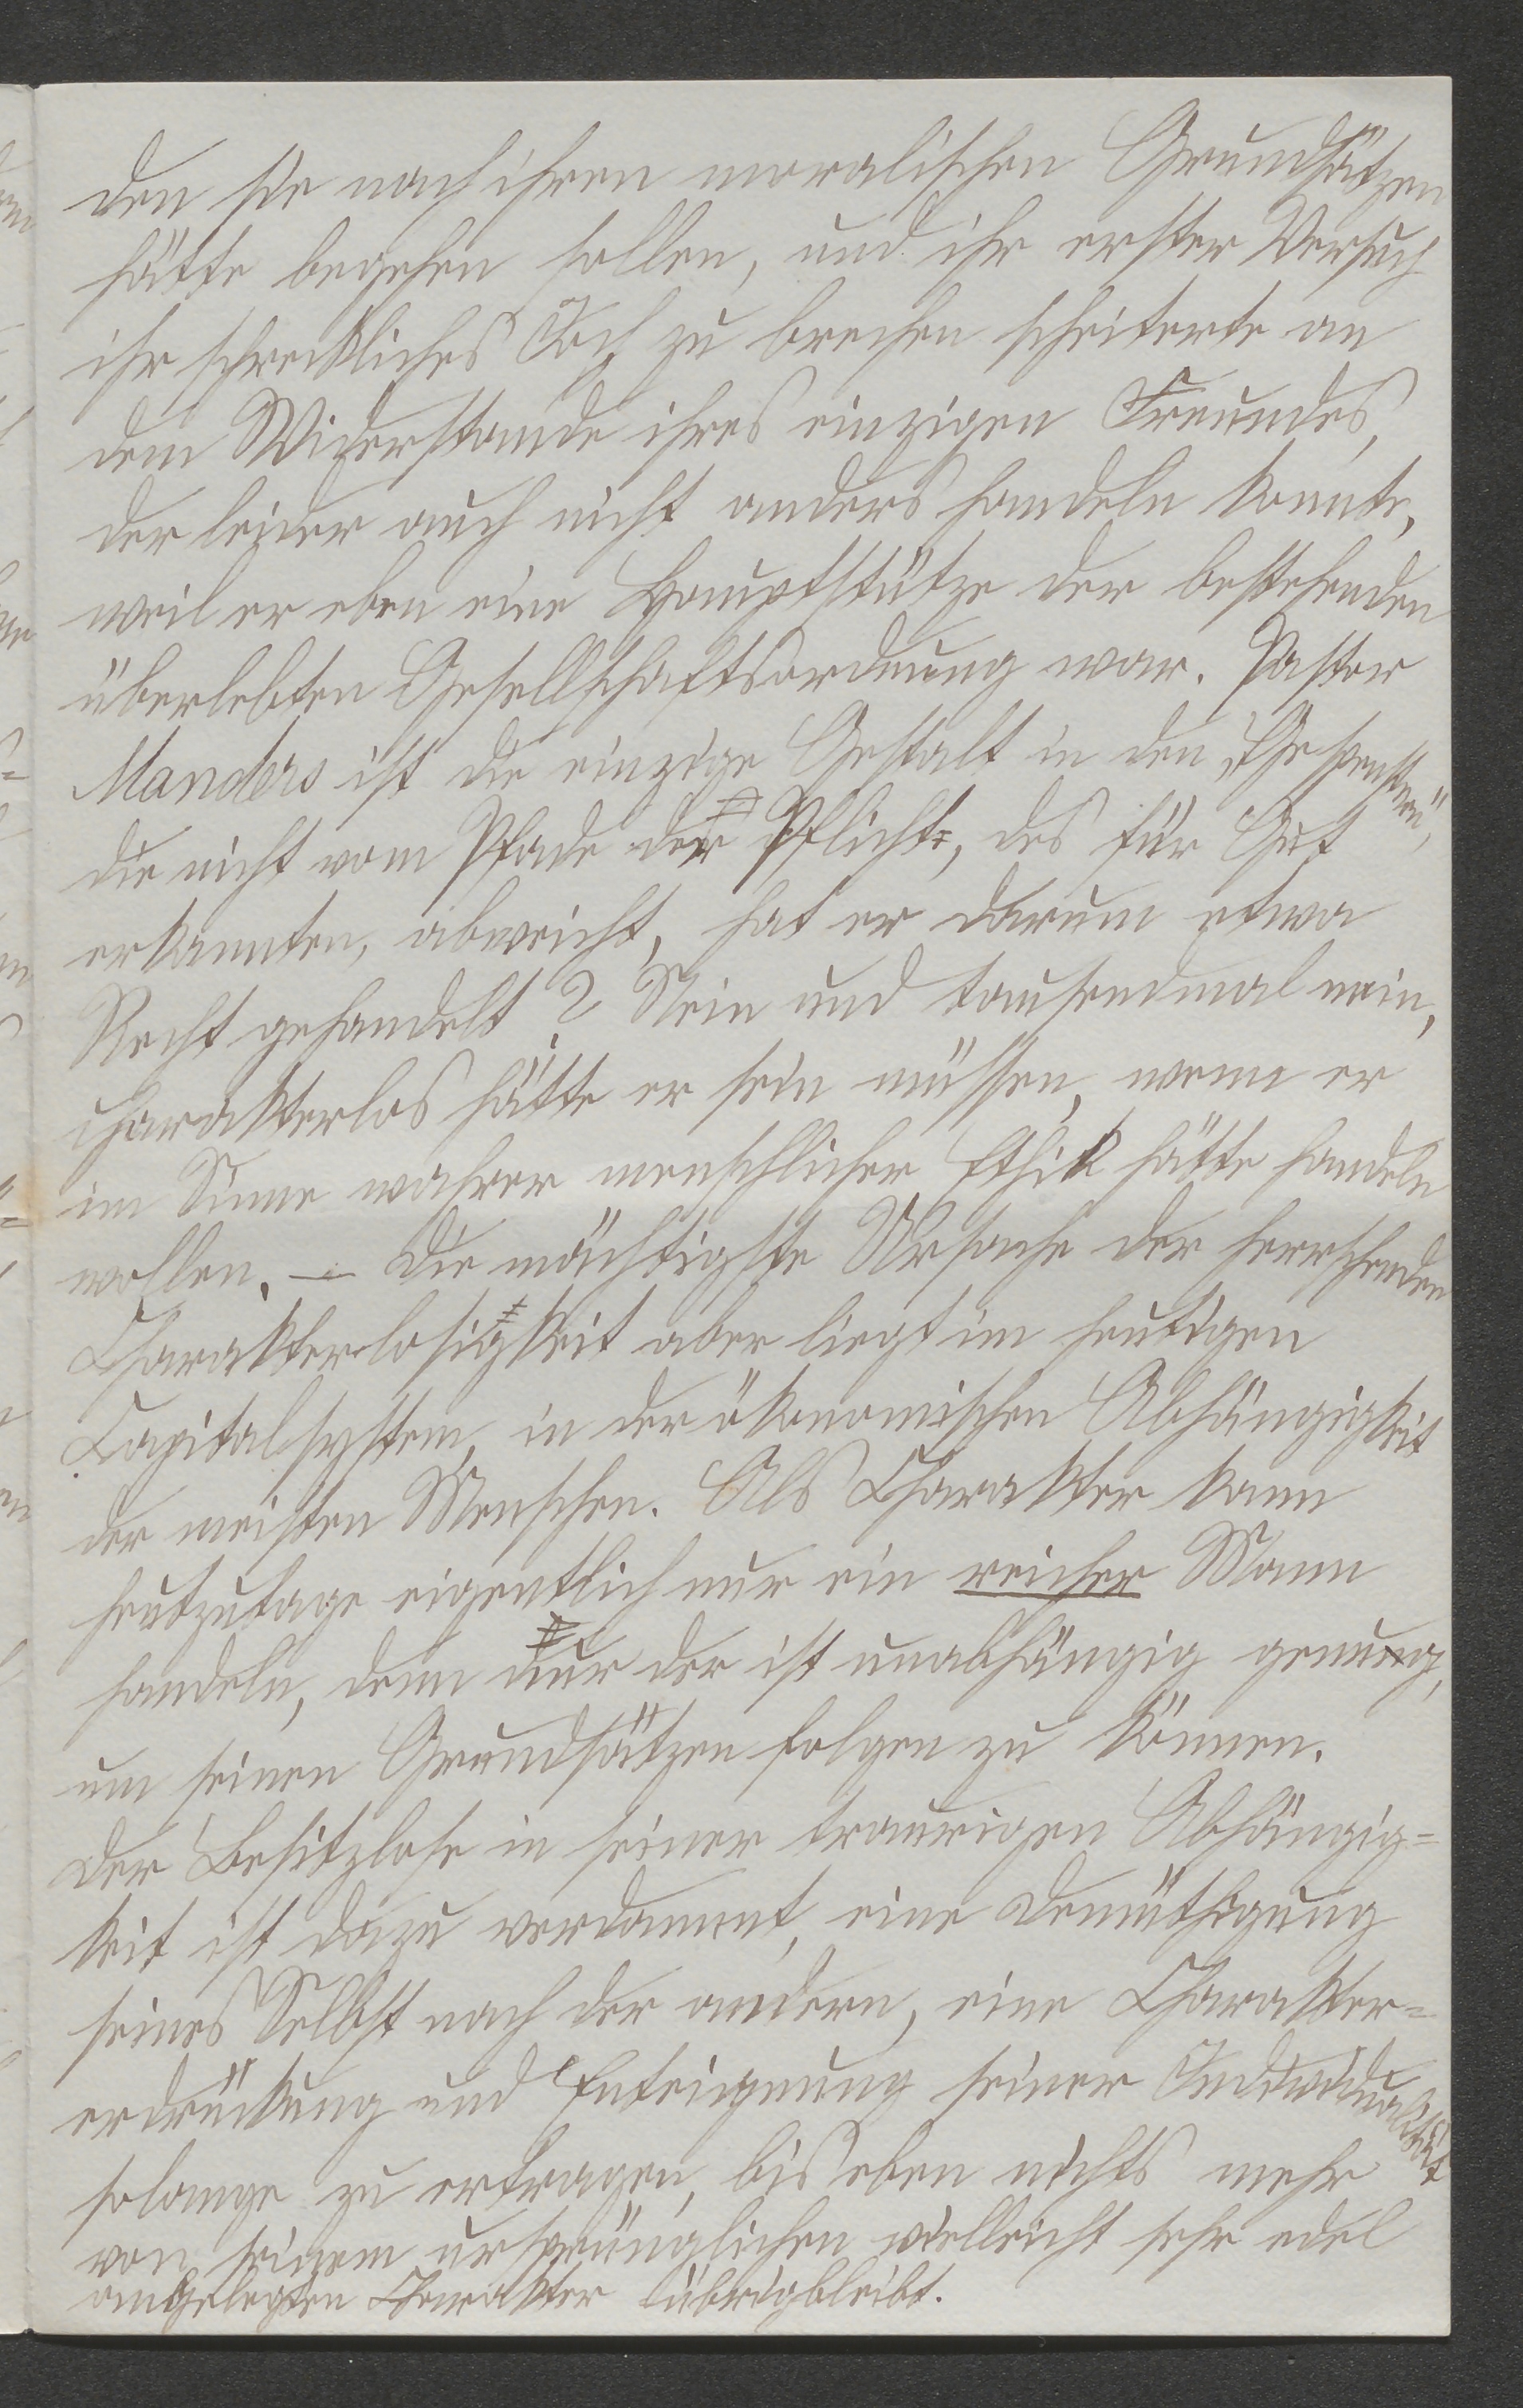 den sie nach ihren moralischen Grundsätzen
hätte begehen sollen, und ihr erster Versuch
ihr schreckliches Joch zu brechen scheiterte an
dem Widerstande ihres einzigen Freundes,
der leider auch nicht anders handeln konnte,
weil er eben eine Hauptstütze der bestehenden
überlebten Gesellschaftsordnung war. Pastor
Manders ist die einzige Gestalt in den „Gespenstern“,
die nicht vom Pfade der Pflicht, des für Gut
erkannten, abweicht, hat er darum etwa
Recht gehandelt? Nein und tausendmal nein,
charakterlos hätte er sein müssen, wenn er
im Sinne wahrer menschlicher Ethik hätte handeln
wollen. – Die mächtigste Ursache der herrschenden
Charakterlosigkeit aber liegt im heutigen
Capitalsystem, in der ökonomischen Abhängigkeit
der meisten Menschen. Als Charakter kann
heutzutage eigentlich nur ein reicher Mann
handeln, denn nur der ist unabhängig genug,
um seinen Grundsätzen folgen zu können.
Der Besitzlose in seiner traurigen Abhängig=
keit ist dazu verdammt, eine Demüthigung
seines Selbst nach der andern, eine Charakter=
erdrückung und Enteignung seiner Individualität
solange zu ertragen, bis eben nichts mehr
von seinem ursprünglichen vielleicht sehr edel
angelegten Charakter übrigbleibt.